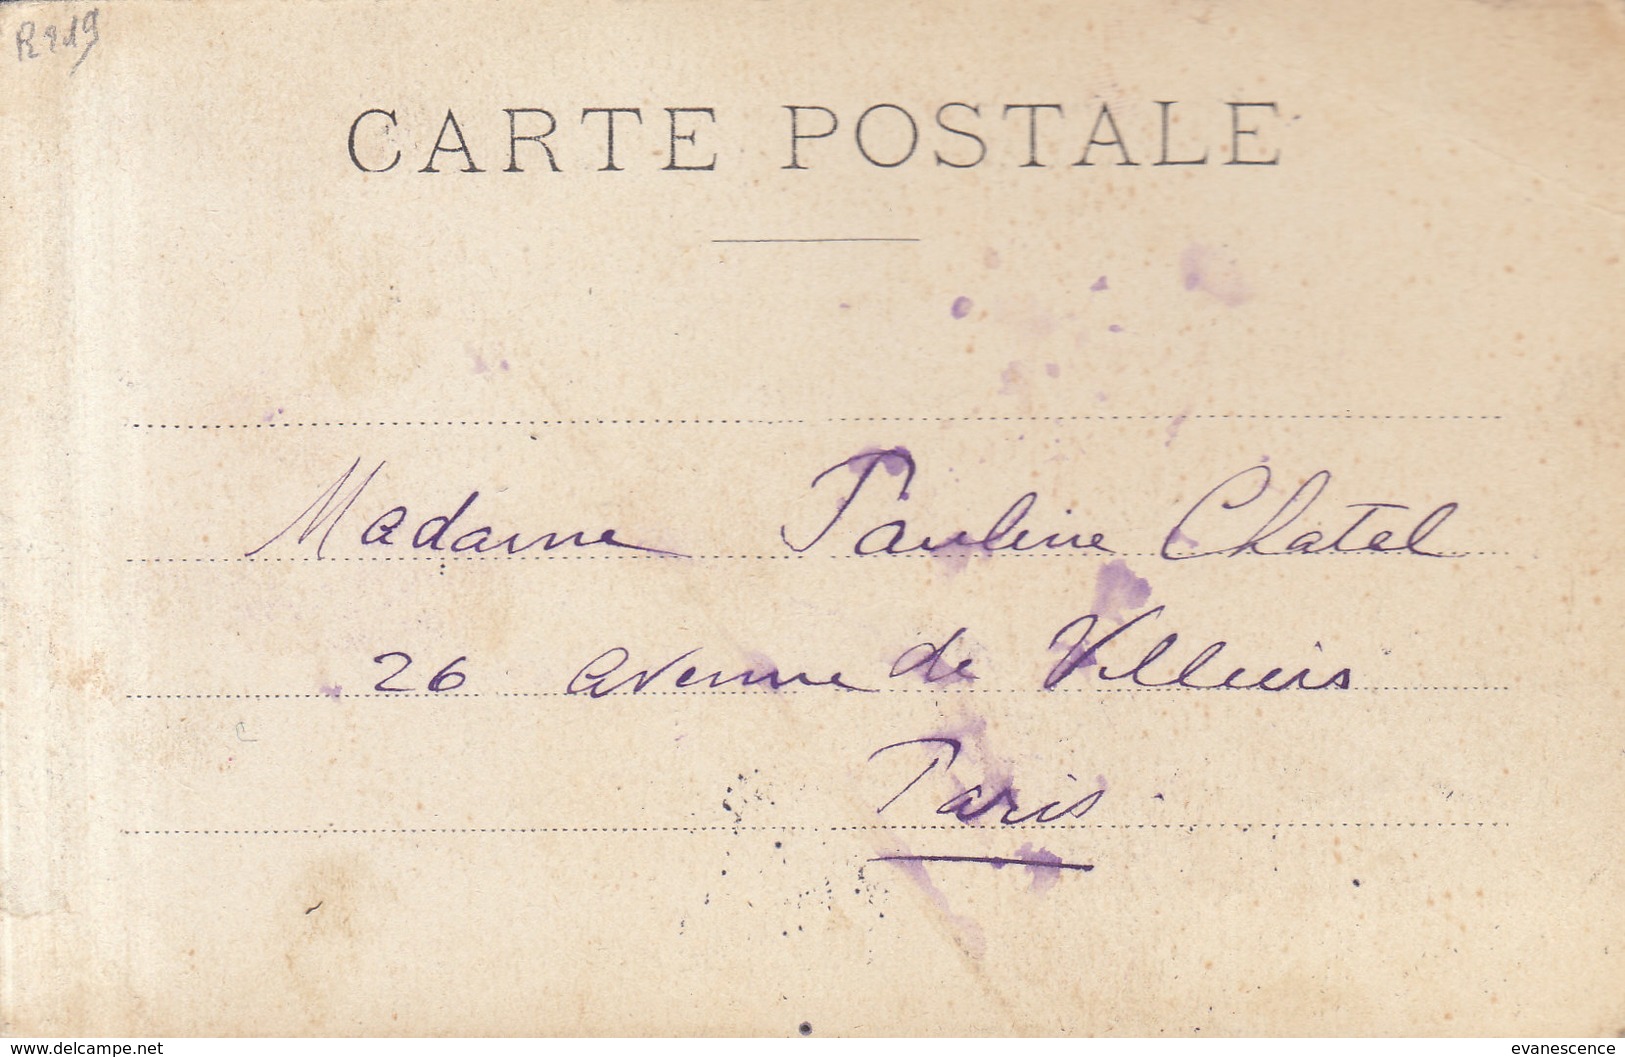 R219
CARTE POSTALE
Madame Pauline Chatel
26 avenue de Villiers
Paris
www.delcampe.net
evanescence